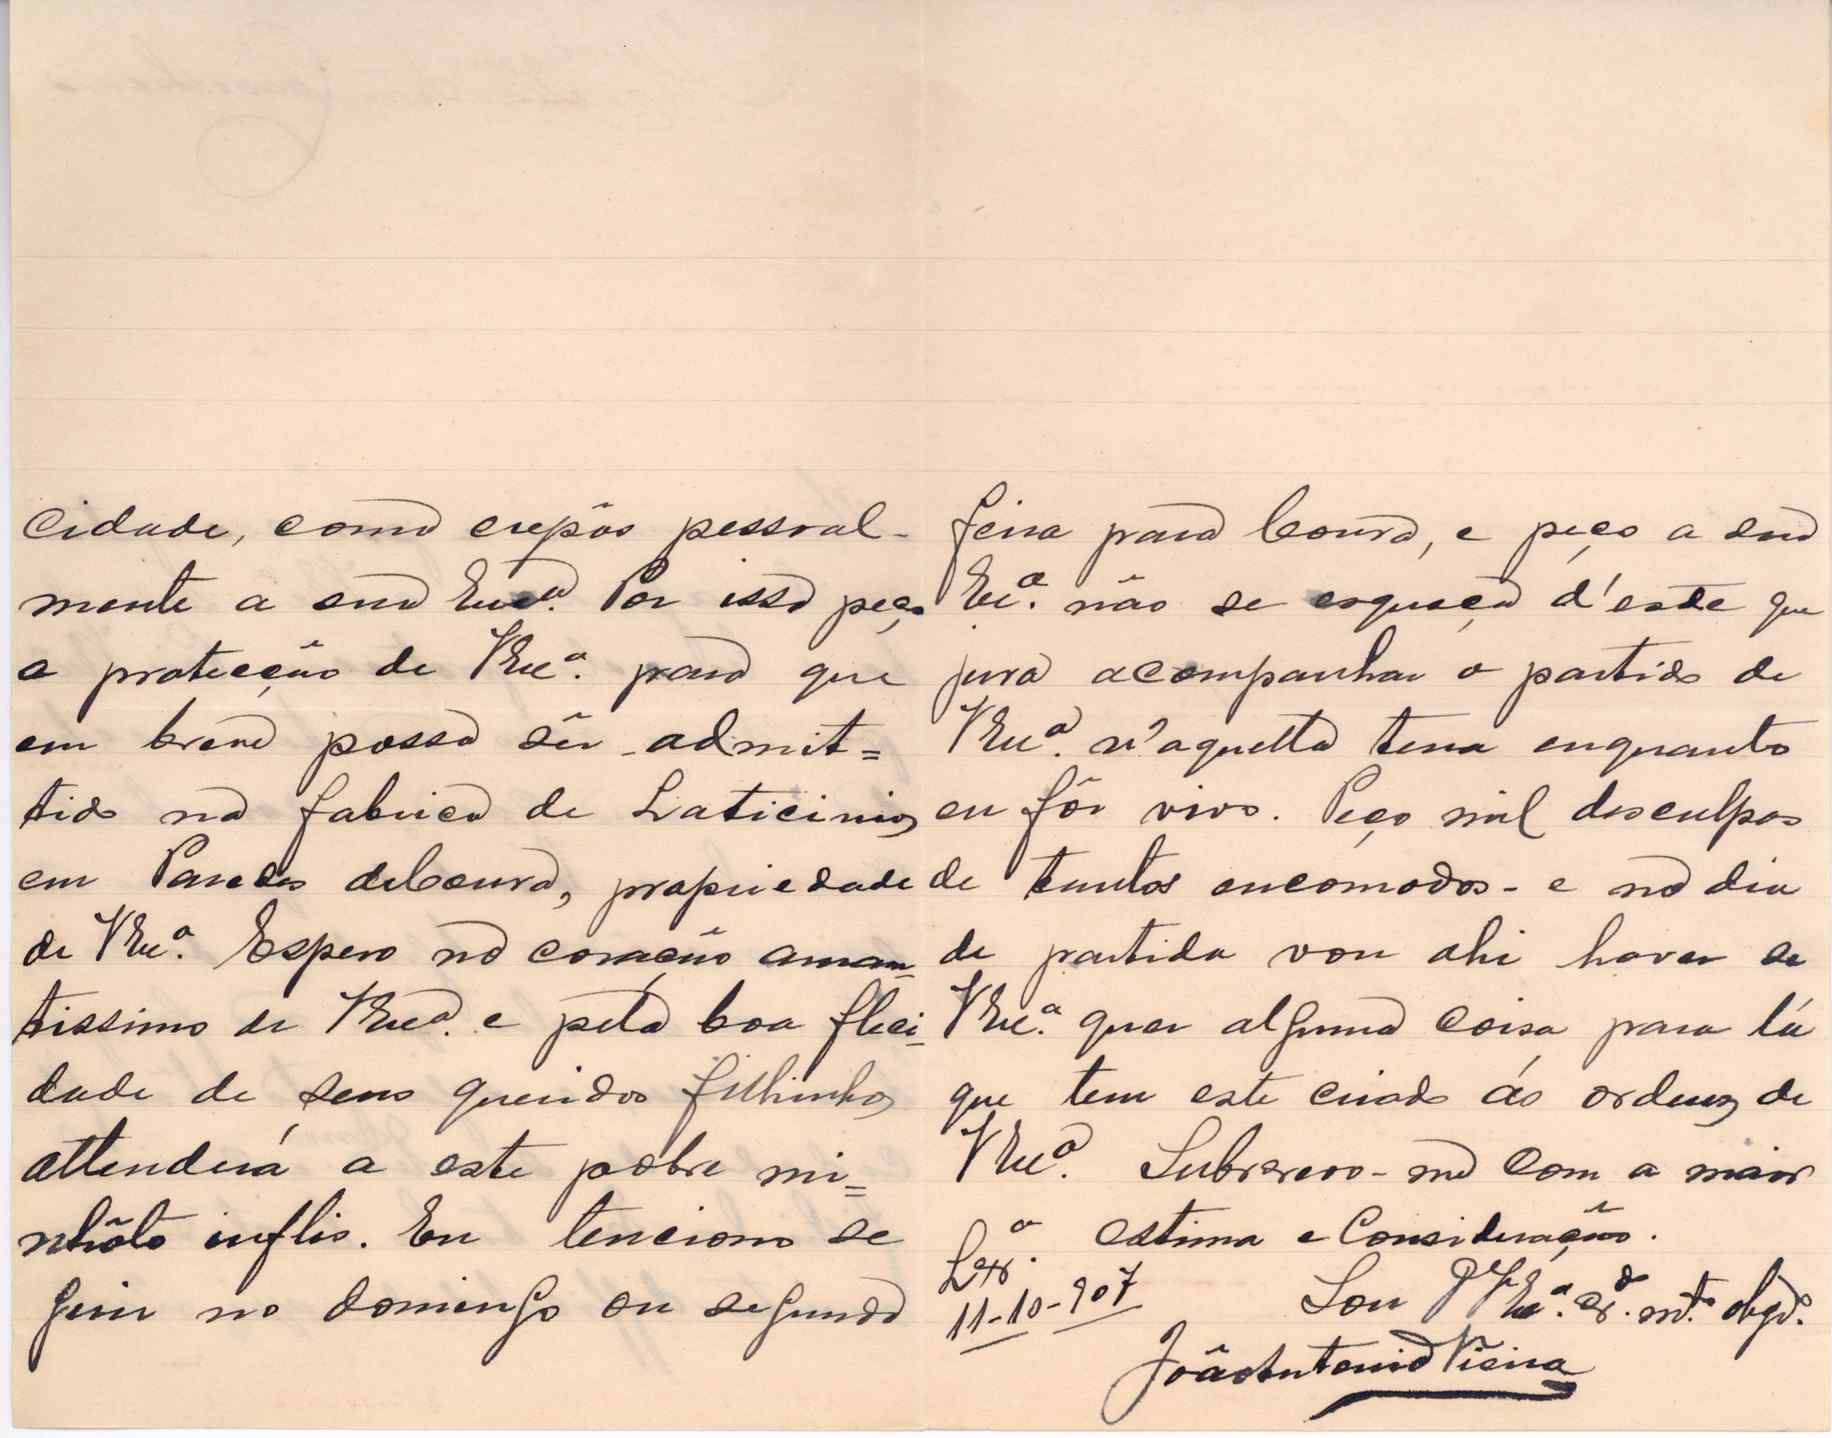 cidade, como expôs pessoal-
mente a sua Excª. Por isso peço
a protecção de VExcª. para que
em breve possa sêr admit=
tido na fabrica de Laticinios
em Paredes de Coura, propriedade
de VExcª. Espero no coração aman-
tissimo de VExcª. e pela boa flici-
dade de seus queridos filhinhos
attenderá a este pobre mi=
nhôto inflis. Eu tenciono se
guir no domingo ou segunda
feira para Coura, e peço a sua
Excª. não se esqueça d'este que
jura acompanhar o partido de
VExcª. n'aquella terra enquanto
eu fôr vivo. Peço mil desculpas
de tantos encomodos - e no dia
de partida vou ahi haver se
VExcª. quer alguma coisa para lá
que tem este criado ás ordens de
VExcª. Subscrevo-me com a maior
estima e Consideração.
Lxª.
11-10-907
Sou De VExª. Crº. mtº obgdº.
João Antonio Vieira